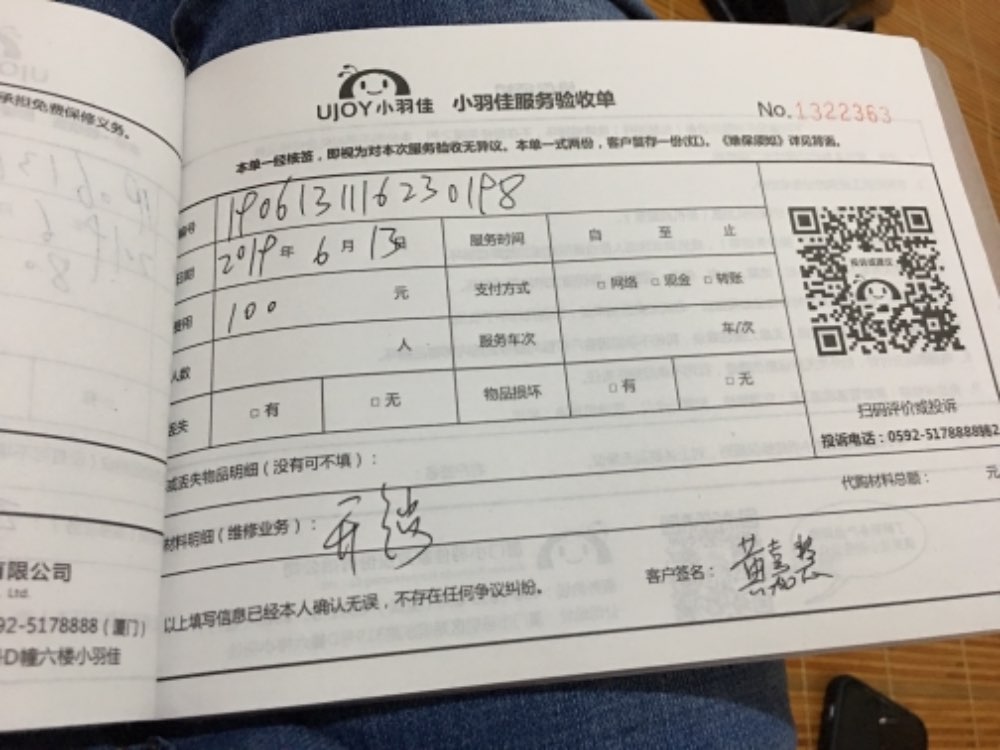 承担免费保修义务。
UJOY小羽佳 小羽佳服务验收单
No.1322363
本单一经核签，即视为对本次服务验收无异议。本单一式两份，客户留存一份(红)。《维保须知》详见背面。
编号 1906131116230198
日期 2019年 6月 13日 服务时间 自 至 止
费用 100 元 支付方式 □网络 □现金 □转账
人数 人 服务车次 年/次
丢失 □有 □无 物品损坏 □有 □无
投诉或建议
扫码评价或投诉
投诉电话：0592-5178888转2
或丢失物品明细（没有可不填）：
代购材料总额： 元
材料明细（维修业务）： 开锁
客户签名： 黄嘉慧
以上填写信息已经本人确认无误，不存在任何争议纠纷。
有限公司
Ltd.
92-5178888（厦门）
D幢六楼小羽佳